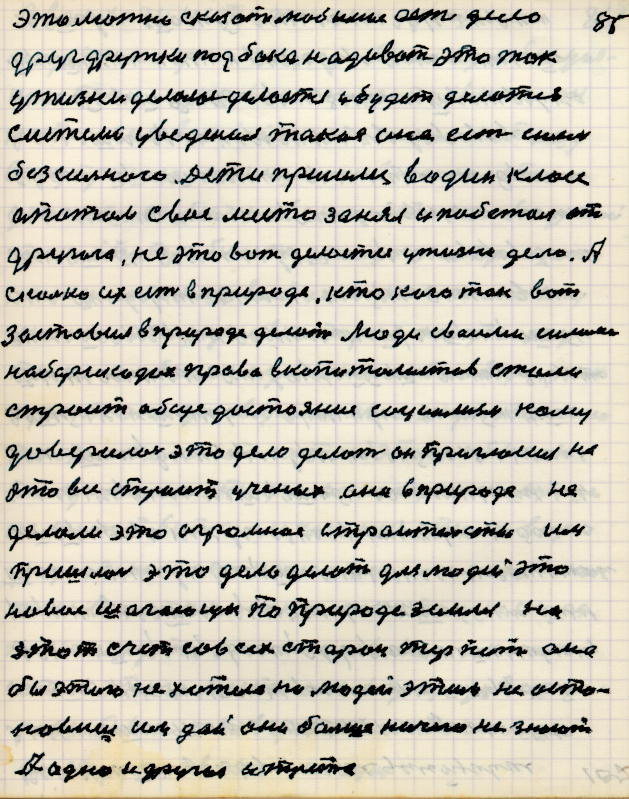 это можно сказать любимие ест дело 85
друг дружки под бока надиват это так
у жизни делалос делаетс и будет делатса
система уведеная такая она ест силы
безсилного. Дети пришли в один класс
апотом свае место занял и побежал от
другога, не это вот делаетса у жизни дело. А
сколко их ест в природе, кто кого так вот
заставил в природе делат Люди сваими силами
на барикадах права в капиталистов
строит обще достояние социализм каму
доверилас это дело делат он пригласил на
это все страит ученых они в природе не
делали это огромнае строителство им
пришлос это дело делат для людей это
новае шагающи По Природе земля на
этот счет совсех старон терпит она
бы этого не хотела но людей этим не оста-
новиш им дай они болше ничего не знают
А одно и другое и трете